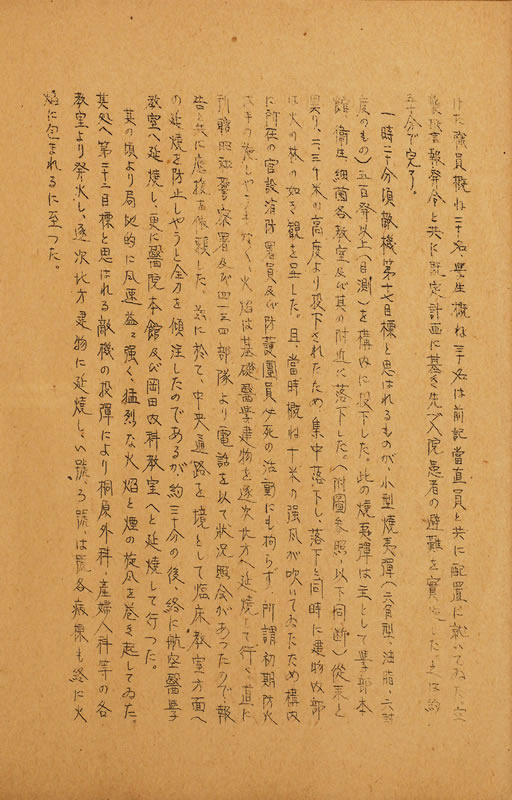 隊員概ね三十名學生概ね三十名は前記當直員と共に配置に就いてゐた
警報發令と共に既定計画に基き先づ入院患者の避難を實施
五十分で完了。
一時二十分頃敵機第十七目標と思はれるものが、小型焼夷彈(六角型、油脂、六封
度のもの)五百発以上(目測)を構内に投下した。此の焼夷彈は主として學部本
館、衛生細菌各教室及び其の附近に落下した。(附圖参照、以下同断)従来と
異り、二、三千米の高度より投下されたため集中落下し、落下と同時に建物内部
は火の林の如き観を呈した。且、當時概ね十米の强風が吹いてゐたため構内
に所在の官設消防署員及び防護團員必死の活動にも拘らず、所謂初期防火
の施しやうもなく、火焔は基礎醫學建物を逐次北方へ延焼して行く。直に
所轄昭和警察署及び四三四部隊より電話を以て状況照会があつたので、報
告と共に應援を依頼した。茲に於て、中央通路を境として臨床教室方面へ
の延焼を防止しやうと全力を傾注したのであるが約三十分の後、終に航空醫學
教室へ延焼し、更に醫院本館及び岡田内科教室へと延焼して行つた。
其の頃より局地的に風速益々强く、猛烈な火焔と煙の旋風を巻き起してゐた
其処へ第三十三目標と思はれる敵機の投彈により桐原外科、産婦人科等の各
教室より発火し、逐次北方建物に延焼し、い號、ろ號、は號各病棟も終に火
焔に包まれるに至つた。